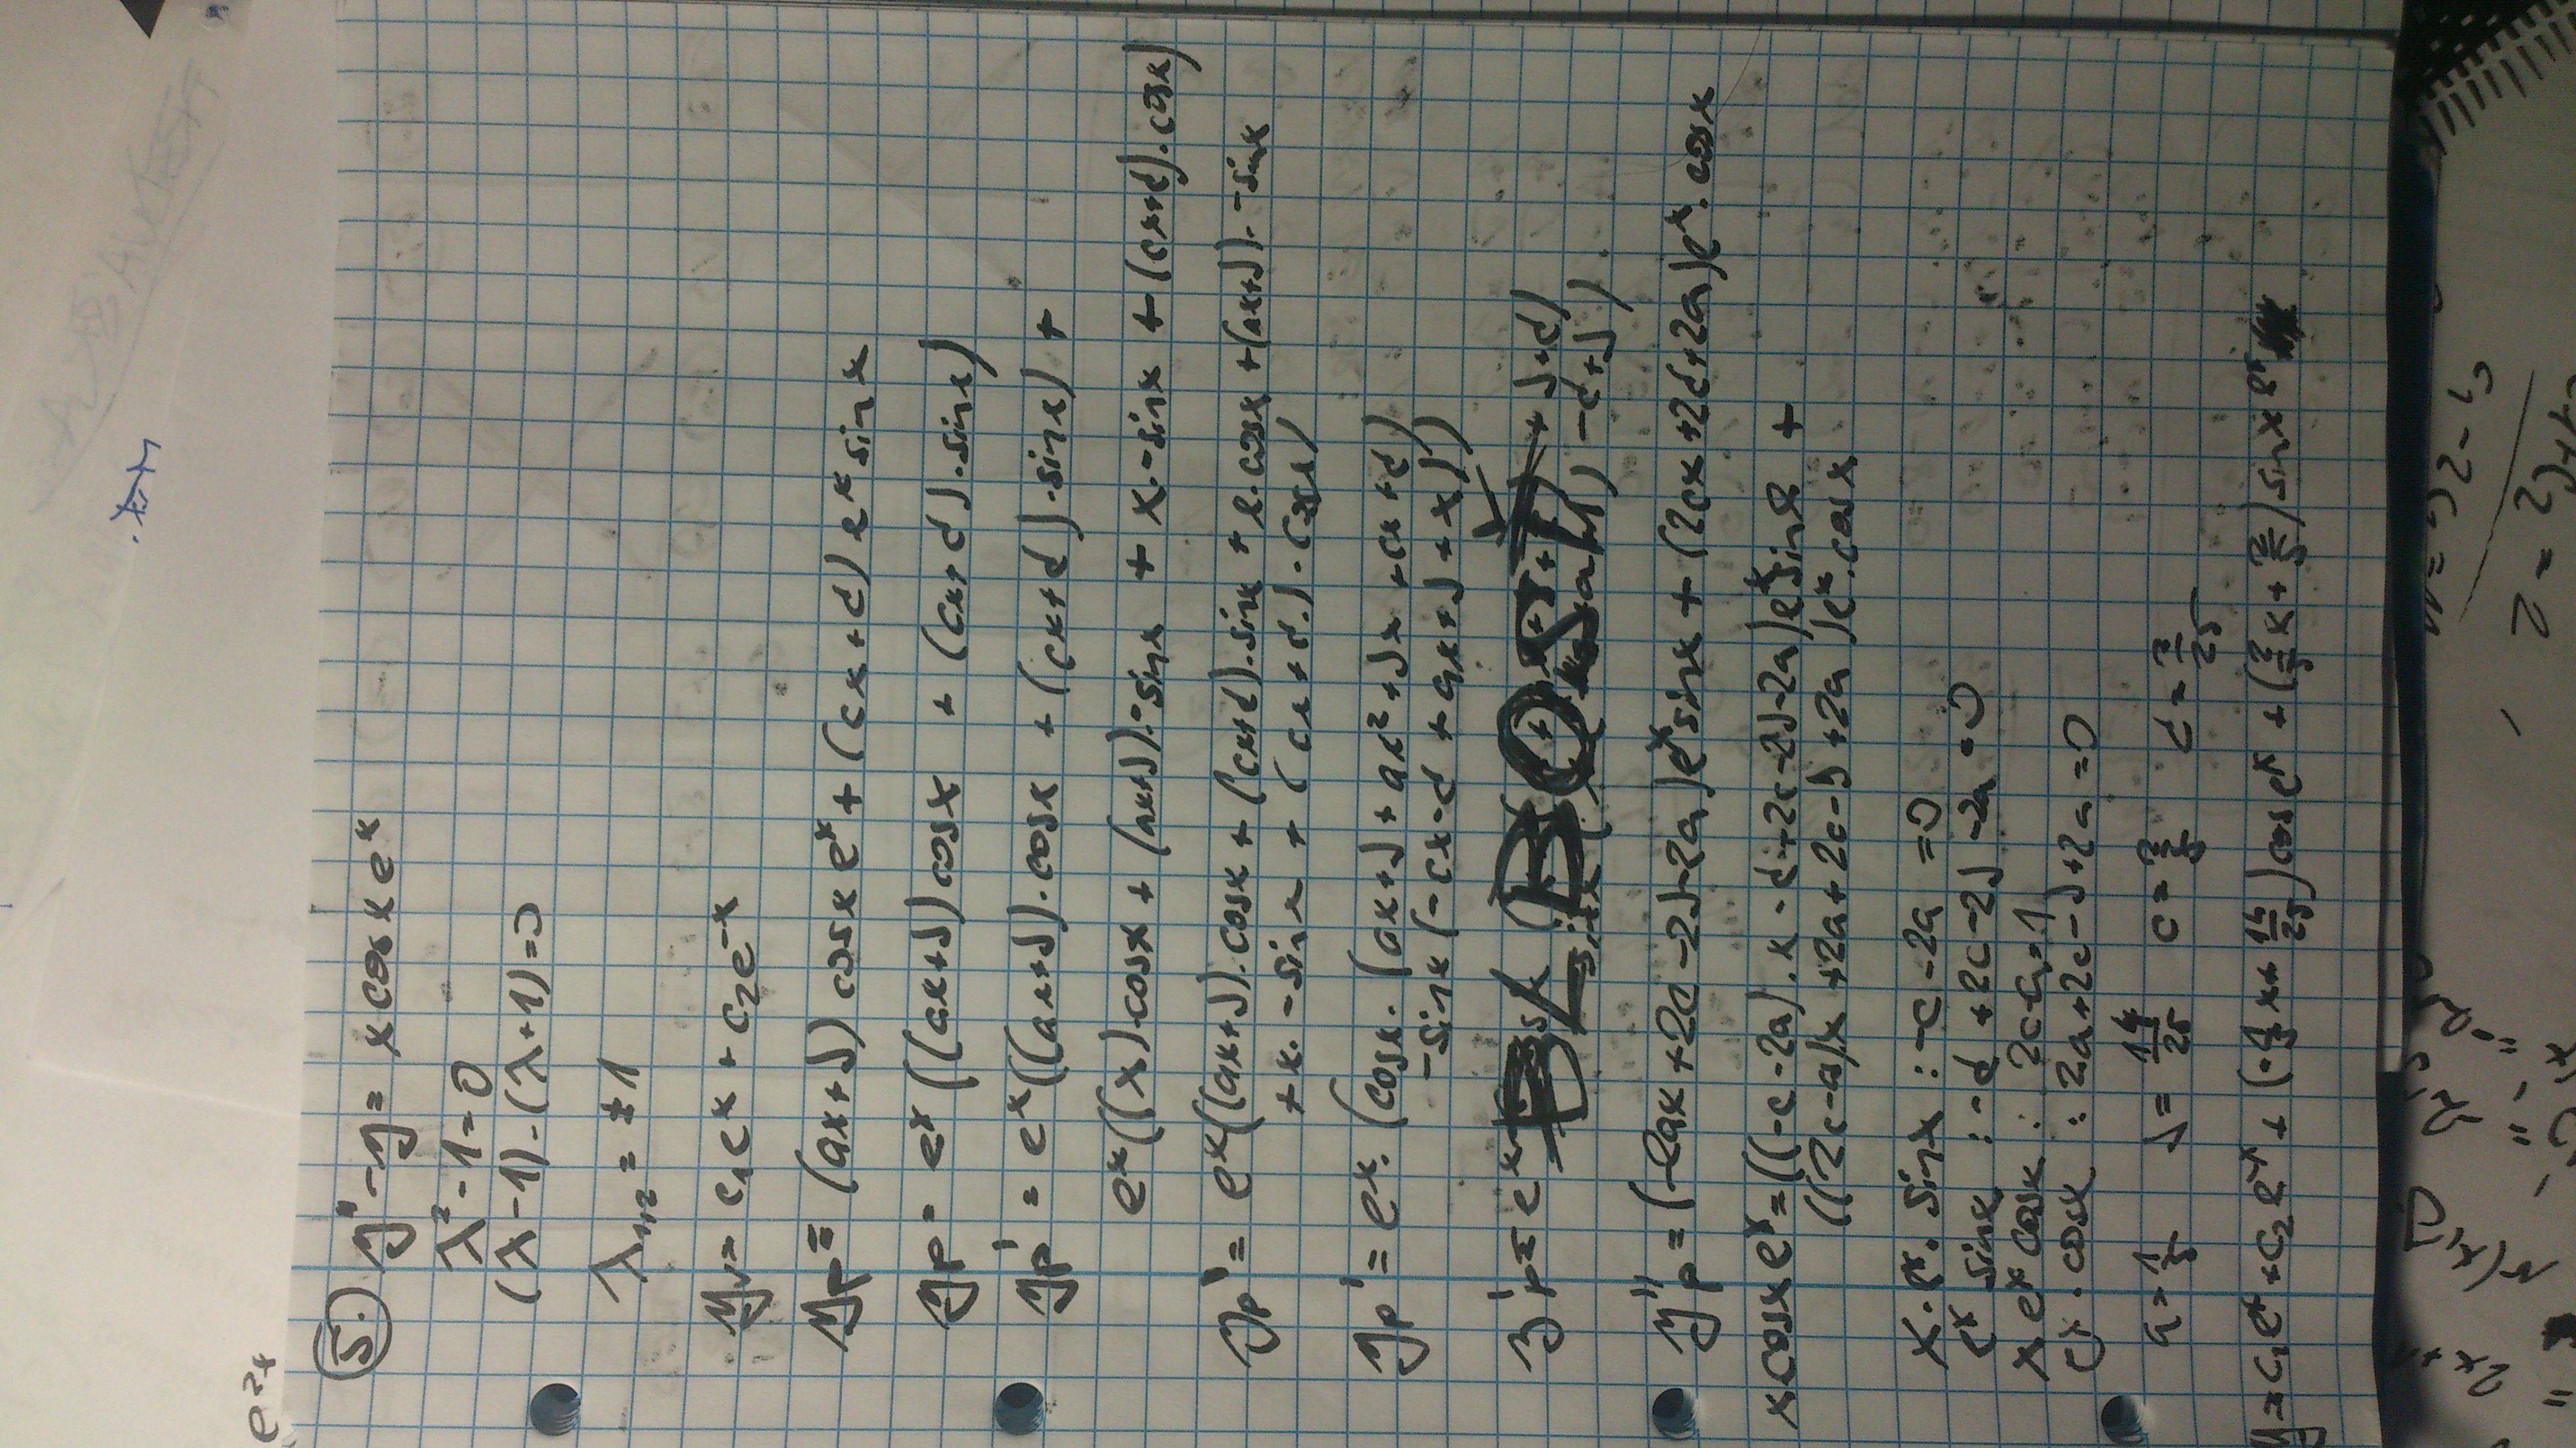 e²ˣ
5. y'' - y = x cos x eˣ
λ² - 1 = 0
(λ - 1) · (λ + 1) = 0
λ₁,₂ = ±1
yᵥ = c₁eˣ + c₂e⁻ˣ
yp = (ax + b) cos x eˣ + (cx + d) eˣ sin x
yp = eˣ ((ax+b) cos x + (cx+d) · sin x)
yp' = eˣ((ax+b) · cos x + (cx+d) · sin x) +
eˣ((x) · cos x + (ax+b) · -sin x + x · -sin x + (cx+d) · cos x)
yp' = eˣ((ax+b) · cos x + (cx+d) · sin x + x · cos x + (ax+b) · -sin x
+ x · -sin x + (cx+d) · cos x)
yp' = eˣ · (cos x · (ax+b + ax² + bx + cx + d)
-sin x (-cx - d + ax + b + x))
y'p = eˣ BLBOST + b + d)
sin x ) - d + b)
y''p = (-2ax + 2c - 2b - 2a)eˣ sin x + (2cx + 2d + 2a)eˣ · cos x
x cos x eˣ = ((-c - 2a) · x - d + 2c - 2b - 2a)eˣ sin x +
((2c - a)x + 2a + 2c - b + 2a)eˣ · cos x
x · eˣ · sin x : -c - 2a = 0
eˣ sin x : -d + 2c - 2b - 2a = 0
x eˣ cos x : 2c - a = 1
eˣ · cos x : 2a + 2c - b + 2a = 0
a = 1/5 b = 14/25 c = 2/5 d = 2/25
y = c₁eˣ + c₂e⁻ˣ + (-1/5 x + 14/25) cos eˣ + (2/5 x + 2/5) sin x eˣ